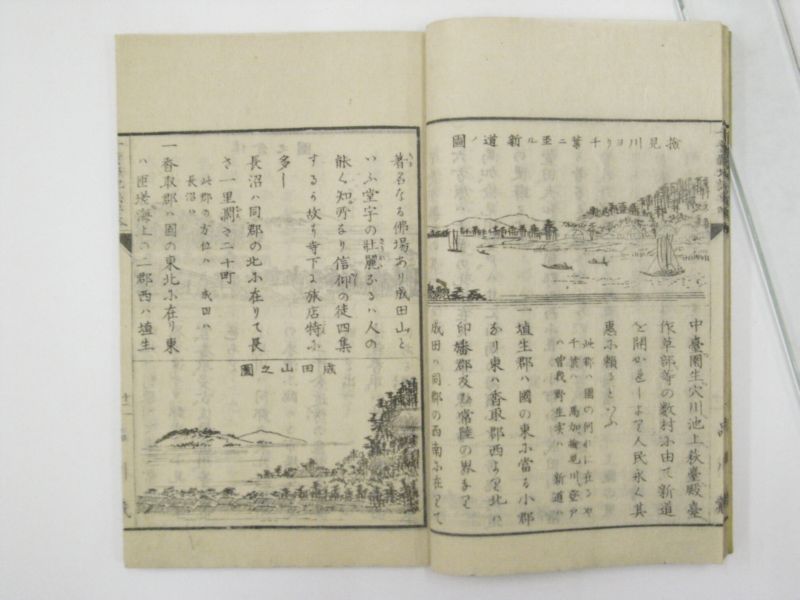 検見川ヨリ千葉ニ至ル新道ノ圖
中臺園生穴川池上萩臺殿臺
作草部等の数村に由て新道
を開かせしより人民永く其
惠ふ頼るといふ
此郡ハ國の何れに在るや
千葉ハ 馬加検見川登戸
ハ 曽我野生実ハ 新道ハ
一埴生郡ハ國の東ふ當る小郡
なり東ハ香取郡西より北ハ
印旛郡及び常陸の界なり
成田ハ同郡の西南ふ在りて
著名なる佛場あり成田山と
いふ堂宇の壮麗なるハ人の
能く知所なり信仰の徒四集
するら故り寺下に旅店特ふ
多し
長沼ハ同郡の北ふ在りて長
さ一里濶さ二十町
此郡の方位ハ 成田ハ
長沼ハ
一香取郡ハ國の東北ふ在り東
ハ匝瑳海上の二郡西ハ埴生
成田山之圖
十一